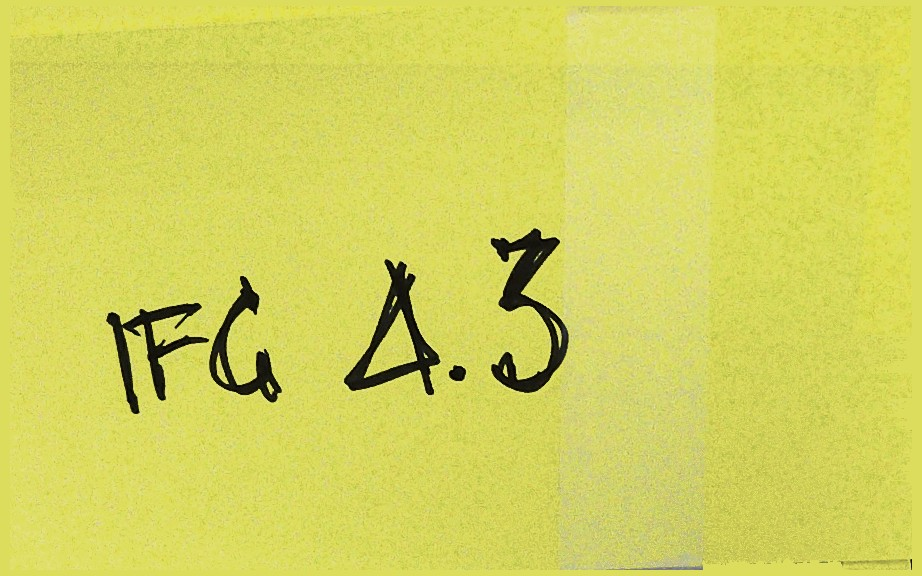 IFC 4.3